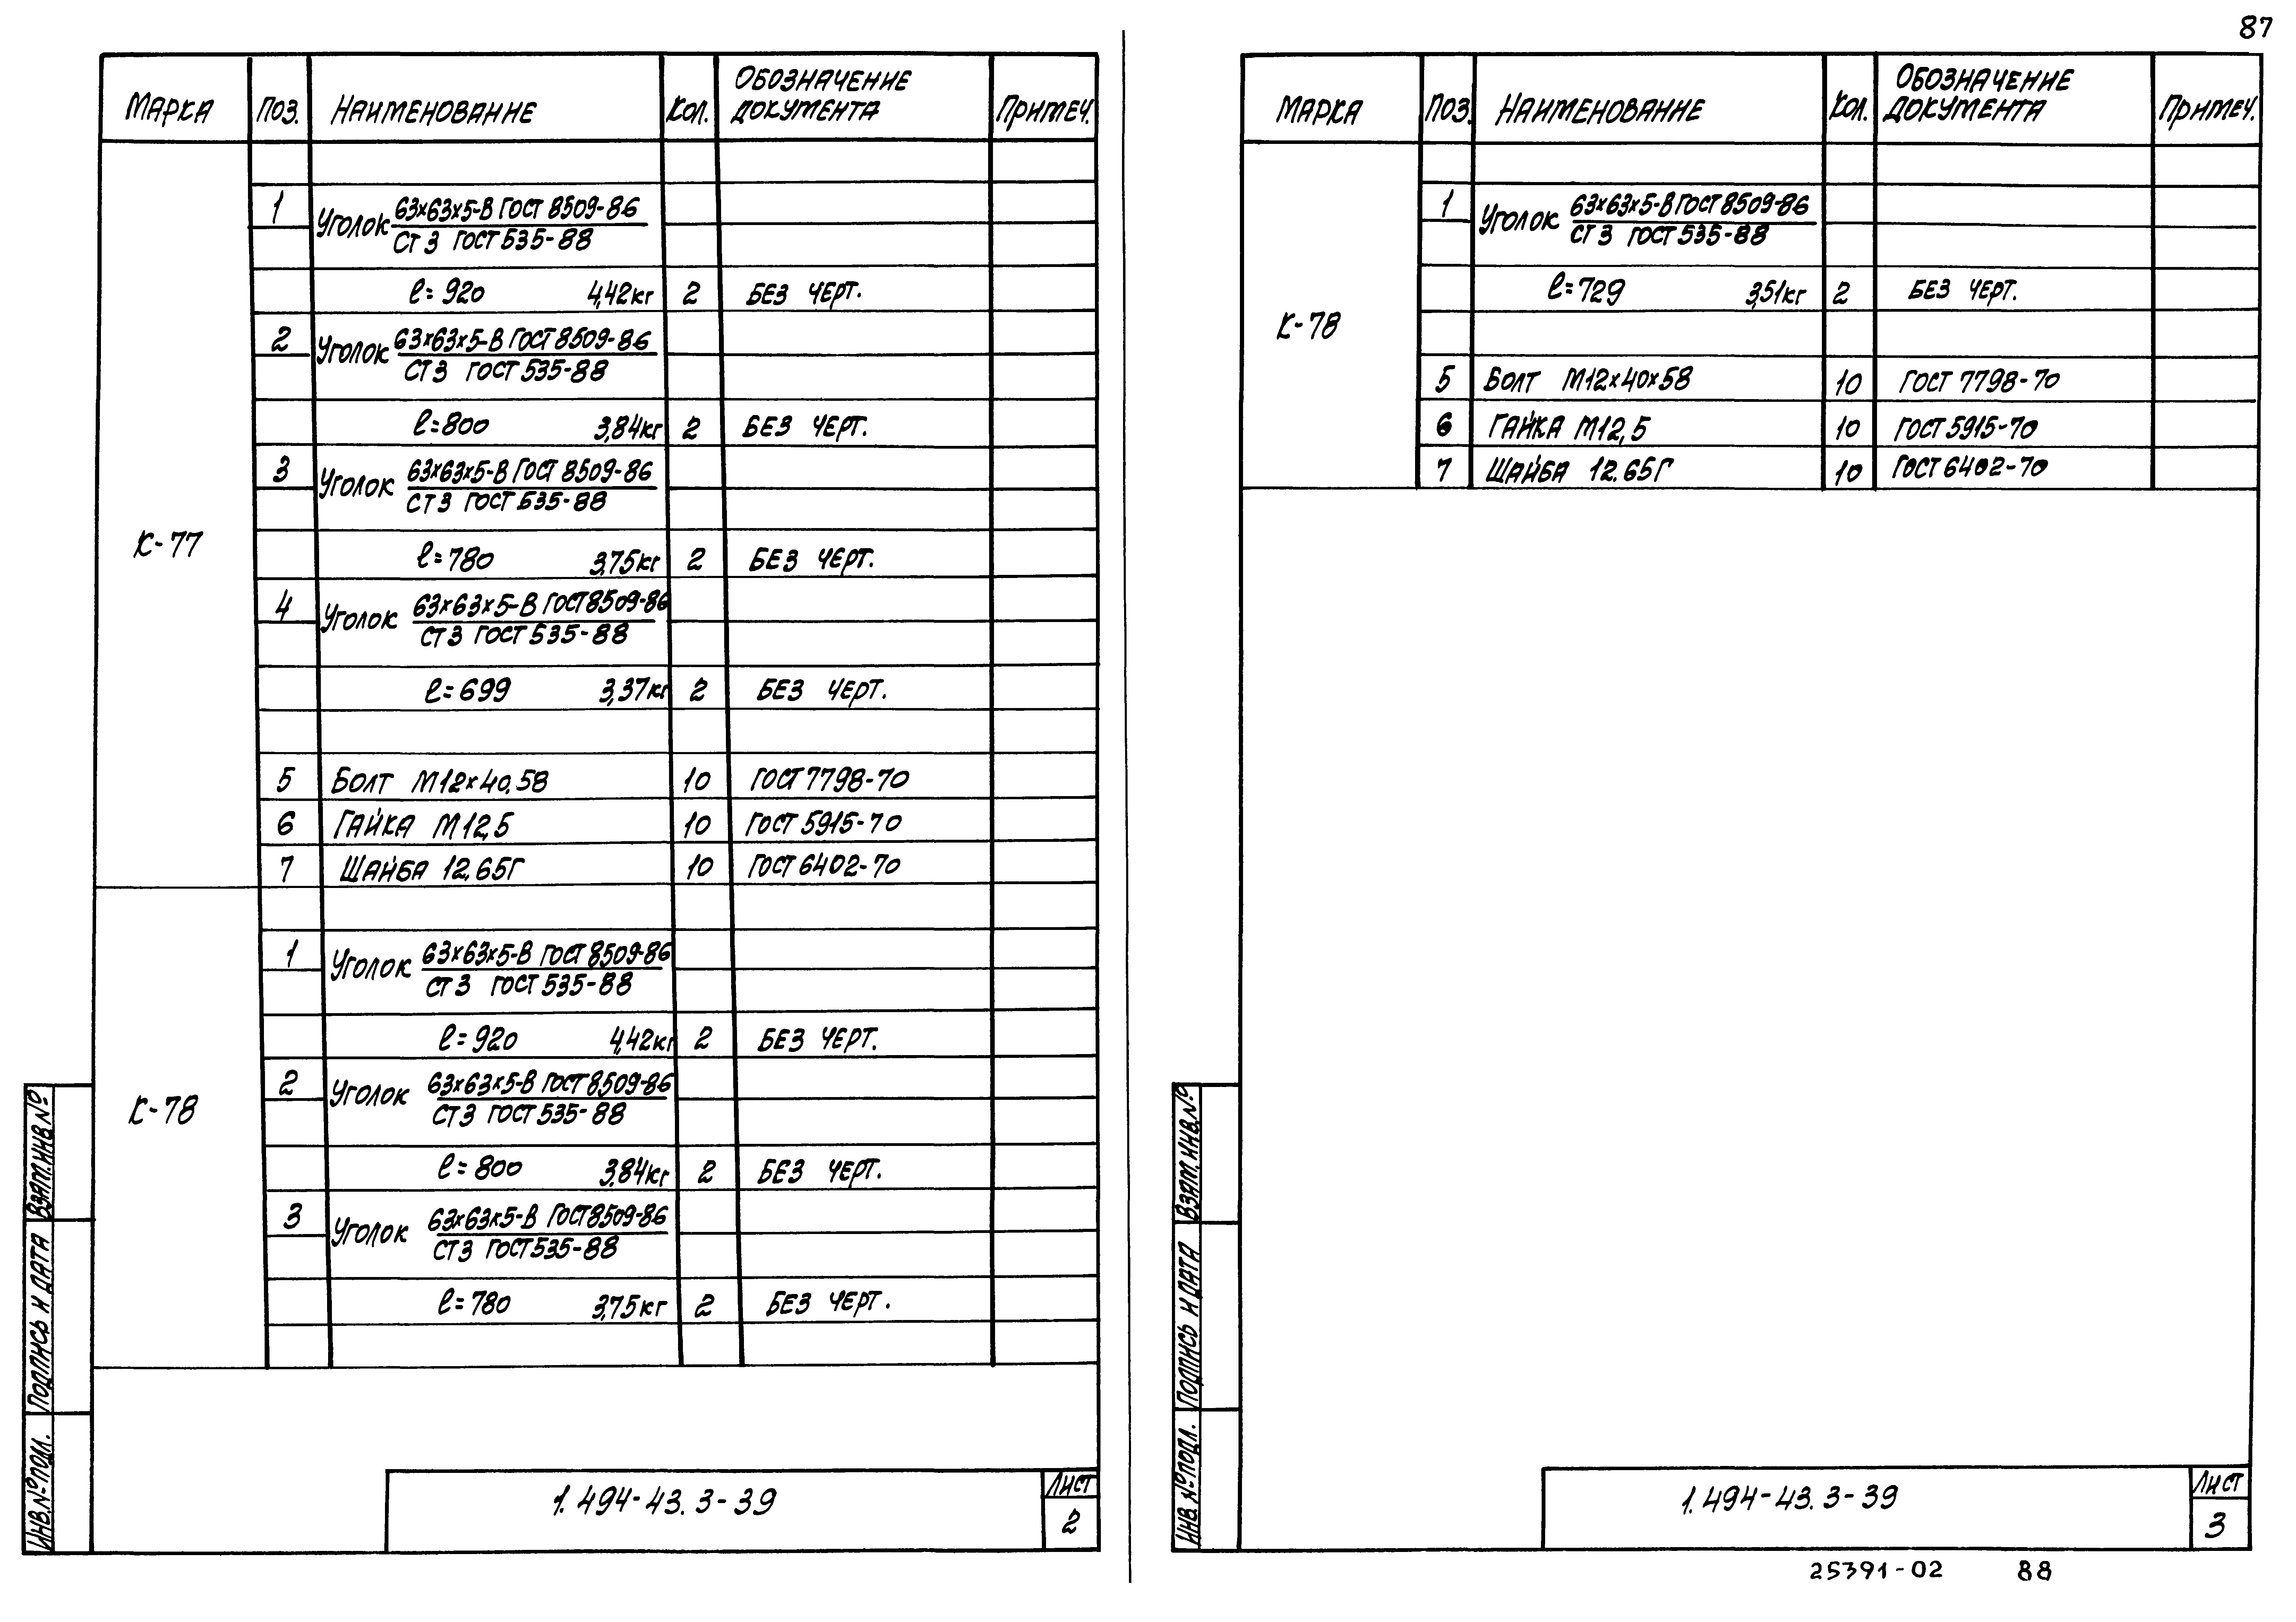 87
МАРКА ПОЗ. НАИМЕНОВАНИЕ КОЛ. ОБОЗНАЧЕНИЕ ДОКУМЕНТА ПРИМЕЧ.
К-77
1 УГОЛОК 63×63×5-В ГОСТ 8509-86
СТ 3 ГОСТ 535-88
ℓ=920 4,42кг 2 БЕЗ ЧЕРТ.
2 УГОЛОК 63×63×5-В ГОСТ 8509-86
СТ 3 ГОСТ 535-88
ℓ=800 3,84кг 2 БЕЗ ЧЕРТ.
3 УГОЛОК 63×63×5-В ГОСТ 8509-86
СТ 3 ГОСТ 535-88
ℓ=780 3,75кг 2 БЕЗ ЧЕРТ.
4 УГОЛОК 63×63×5-В ГОСТ 8509-86
СТ 3 ГОСТ 535-88
ℓ=699 3,37кг 2 БЕЗ ЧЕРТ.
5 БОЛТ М12×40.58 10 ГОСТ 7798-70
6 ГАЙКА М12,5 10 ГОСТ 5915-70
7 ШАЙБА 12.65Г 10 ГОСТ 6402-70
К-78
1 УГОЛОК 63×63×5-В ГОСТ 8509-86
СТ 3 ГОСТ 535-88
ℓ=920 4,42кг 2 БЕЗ ЧЕРТ.
2 УГОЛОК 63×63×5-В ГОСТ 8509-86
СТ 3 ГОСТ 535-88
ℓ=800 3,84кг 2 БЕЗ ЧЕРТ.
3 УГОЛОК 63×63×5-В ГОСТ 8509-86
СТ 3 ГОСТ 535-88
ℓ=780 3,75кг 2 БЕЗ ЧЕРТ.
ВЗАМ.ИНВ.№
ПОДПИСЬ И ДАТА
ИНВ.№ПОДЛ.
1.494-43.3-39
ЛИСТ
2
МАРКА ПОЗ. НАИМЕНОВАНИЕ КОЛ. ОБОЗНАЧЕНИЕ ДОКУМЕНТА ПРИМЕЧ.
К-78
1 УГОЛОК 63×63×5-В ГОСТ 8509-86
СТ 3 ГОСТ 535-88
ℓ=729 3,51кг 2 БЕЗ ЧЕРТ.
5 БОЛТ М12×40×58 10 ГОСТ 7798-70
6 ГАЙКА М12,5 10 ГОСТ 5915-70
7 ШАЙБА 12.65Г 10 ГОСТ 6402-70
ВЗАМ.ИНВ.№
ПОДПИСЬ И ДАТА
ИНВ.№ПОДЛ.
1.494-43.3-39
ЛИСТ
3
25391-02 88